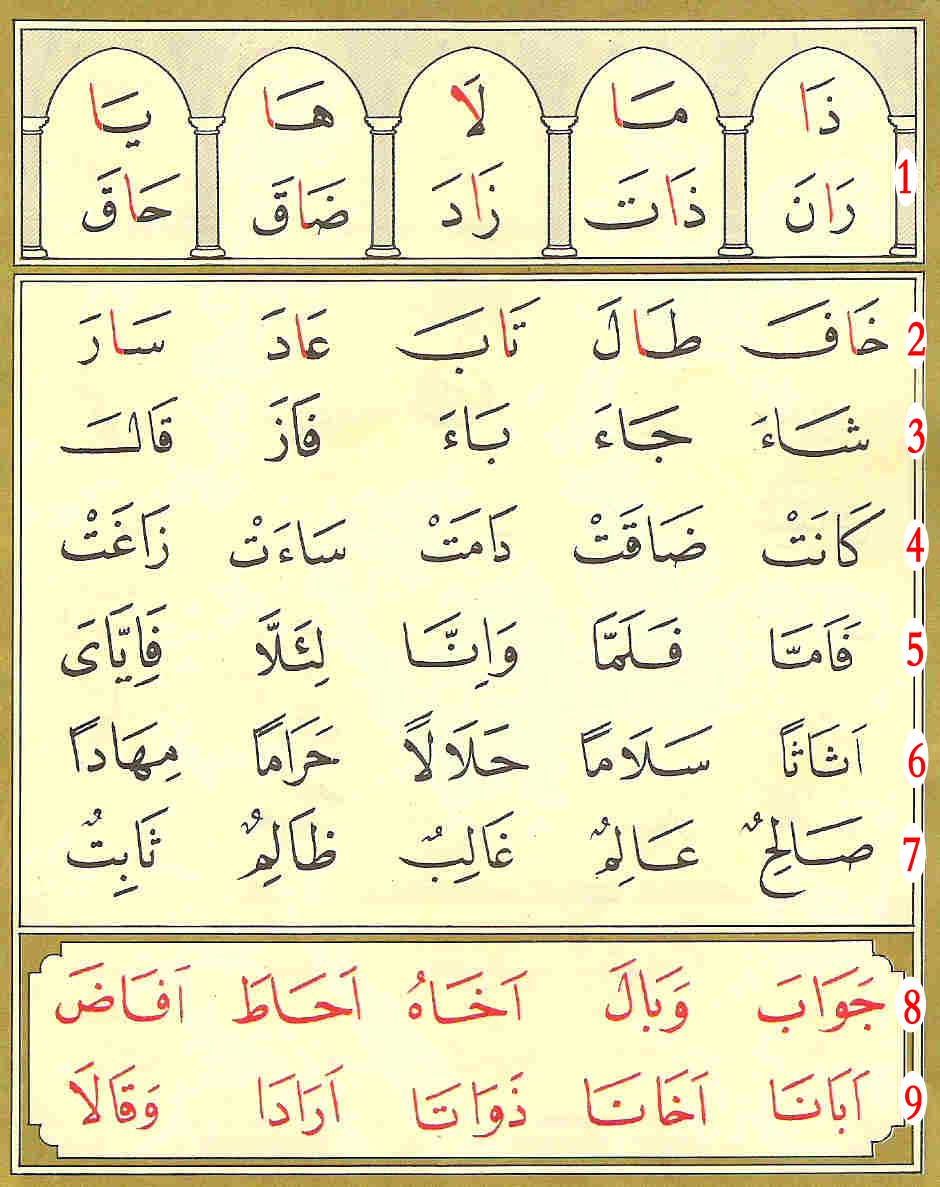 ذَا مَا لَا هَا يَا
1
رَانَ ذَاتَ زَادَ ضَاقَ حَاقَ
2 خَافَ طَالَ تَابَ عَادَ سَارَ
3 شَاءَ جَاءَ بَاءَ فَازَ قَالَ
4 كَانَتْ ضَاقَتْ دَامَتْ سَاءَتْ زَاغَتْ
5 فَاَمَّا فَلَمَّا وَاِنَّا لِئَلَّا فَاِيَّاىَ
6 اَثَاثًا سَلَامًا حَلَالًا حَرَامًا مِهَادًا
7 صَالِحٌ عَالِمٌ غَالِبٌ ظَالِمٌ ثَابِتٌ
8 جَوَابَ وَبَالَ اَخَاهُ اَحَاطَ اَفَاضَ
9 اَبَانَا اَخَانَا ذَوَاتَا اَرَادَا وَقَالَا